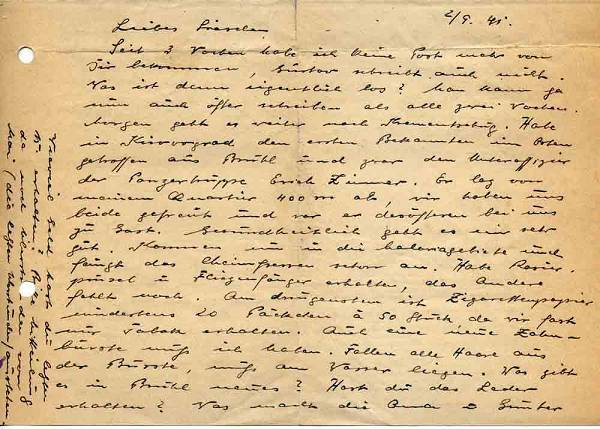 2/9. 41.
Liebes
Seit 3 Wochen habe ich keine Post mehr von
Dir bekommen, Gustav schreibt auch nicht.
Was ist denn eigentlich los? Man kann ja
nun auch öfter schreiben als alle zwei Wochen.
Morgen geht es weiter nach Krementschug. Habe
in Kirowograd den ersten Bekannten im Osten
getroffen aus Brühl und zwar den Unteroffizier
der Panzertruppe Erich Zimmer. Er lag von
meinem Quartier 400 m ab, wir haben uns
beide gefreut und war er desöfteren bei uns
zu Gast. Gesundheitlich geht es mir sehr
gut. Kommen nun in die Malariagebiete und
fängt das Chininfressen schon an. Habe Rasier-
pinsel u Fliegenfänger erhalten, das Andere
fehlt noch. Am dringensten ist Zigarettenpapier
mindestens 20 Päckchen à 50 Stück da wir fast
nur Tabak erhalten. Auch eine neue Zahn-
bürste muß ich haben. Fallen alle Haare aus
der Bürste, muß am Wasser liegen. Was gibt
es in Brühl neues? Hast du das Leder
erhalten? Was macht die Oma u Günter
Wieviel Geld hast du bisher
erhalten? Bitte Mitteilung
da noch